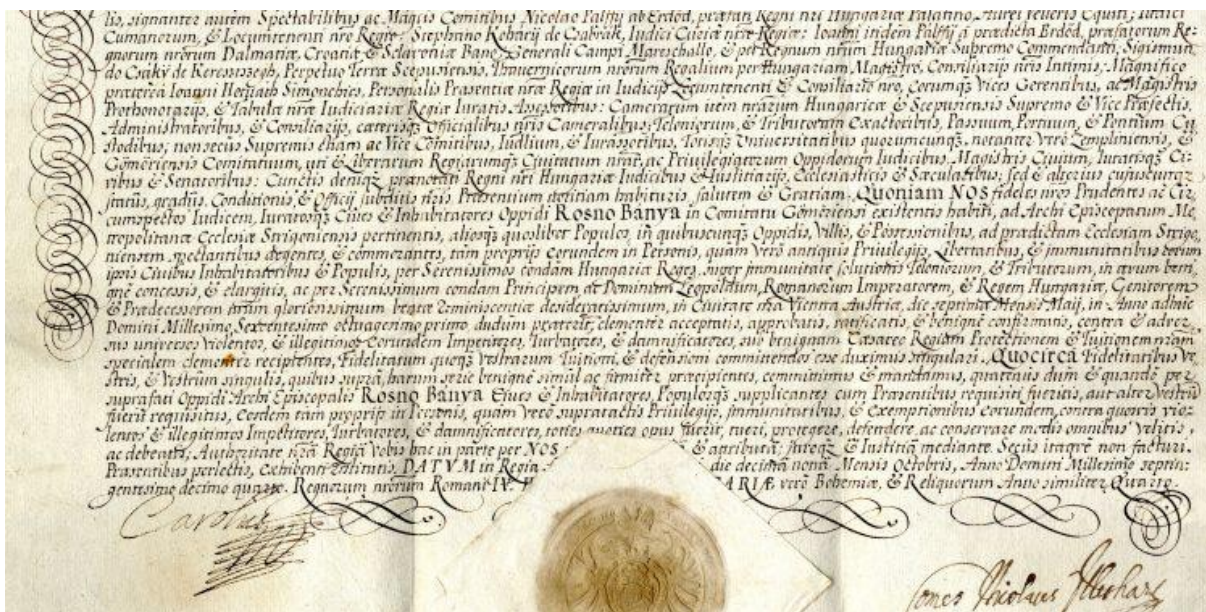 lis, signanter autem Spectabilibus ac Magcis Comitibus Nicolao Palffy ab Erdőd, præfati Regni nri Hungariæ Palatino, Aurei Velleris Equiti; Iudici
Cumanorum, & Locumtenenti nro Regio: Stephano Kohárÿ de Csabrák, Iudici Curiæ nræ Regiæ: Ioanni itidem Palffÿ à prædicta Erdőd, præfatorum Re-
gnorum nrorum Dalmatiæ, Croatiæ & Sclavoniæ Bano, Generali Campi Mareschallo, & per Regnum nrum Hungariæ Supremo Commendanti, Sigismun
do Csákÿ de Keresszegh, Perpetuo Terræ Scepusiensis, Tavernicorum nrorum Regalium per Hungariam Magistro, Consiliarijs nris Intimis, Magnifico
præterea Ioanni Horváth Simonchics, Personalis Præsentiæ nræ Regiæ in Iudicijs Locumtenenti & Consiliario nro, eorumqz Vices Gerentibus, ac Magistris
Prothonotarijs, & Tabulæ nræ Iudiciariæ Regiæ Iuratis Assessoribus: Camerarum item nrarum Hungaricæ & Scepusiensis Supremo & Vice Præfectis,
Administratoribus, & Consiliarijs, cæterisqz Officialibus nris Cameralibus; Teloniorum, & Tributorum Exactoribus, Passuum, Portuum, & Pontium Cu
stodibus; non secus Supremis etiam ac Vice Comitibus, Iudlium, & Iurassoribus, Totisqz Universitatibus quorumcunqz, notanter verò Zempliniensis, &
Gőmőriensis Comitatuum, uti & Liberarum Regiarumqz Civitatum nrar, ac Privilegiatorum Oppidorum Iudicibus, Magistris Civium, Iuratisqz Ci-
vibus & Senatoribus: Cunctis deniqz prænotati Regni nri Hungariæ Iudicibus & Iustitiarijs, Ecclesiasticis & Sæcularibus; sed & alterius cujuscunqz
statûs, gradûs, Conditionis, & Officij subditis nris Præsentium notitiam habituris, salutem & Gratiam. Quoniam NOS fideles nros Prudentes ac Cir-
cumspectos Iudicem, Iuratosqz Cives & Inhabitatores Oppidi Rosno Banya in Comitatu Gőmőriensi existentis habiti, ad Archi Episcopatum Me
tropolitanæ Ecclesiæ Strigoniensis pertinentis, aliosqz quoslibet Populos, in quibuscunqz Oppidis, Villis, & Possessionibus, ad prædictam Ecclesiam Strigo,
niensem spectantibus degentes, & commorantes, tam proprijs eorundem in Personis, quàm verò antiquis Privilegijs, Libertatibus, & immunitatibus eorum
ipsis Civibus Inhabitatoribus & Populis, per Serenissimos condam Hungariæ Reges, super immunitate solutionis Teloniorum, & Tributorum, in ævum beni
gnè concessis, & elargitis, ac per Serenissimum condam Principem ac Dominum Leopoldum, Romanorum Imperatorem, & Regem Hungariæ, Genitorem
& Prædecessorem nrum gloriosissimum beatæ reminiscentiæ desideratissimum, in Civitate nra Vienna Austriæ, die septima Mensis Maij, in Anno adhuc
Domini Millesimo, Sexcentesimo octuagesimo primo, dudum præterit, clementer acceptatis, approbatis, ratificatis, & benignè confirmatis, contra & adver
sus universos violentos, & illegitimos eorundem Impetitores, Turbatores, & damnificatores, sub benignam Cæsareo Regiam Protectionem & Tuitionem nram
specialem clementer recipientes, Fidelitatum quoqz Vestrarum Tuitioni, & defensioni committendos esse duximus singulari. Quocirca Fidelitatibus Ve
stris, & Vestrûm singulis, quibus suprà, harum serie benignè simul ac firmiter præcipientes, committimus & mandamus, quatenus dum & quando per
suprafati Oppidi Archi Episcopalis Rosno Banya Cives & Inhabitatores, Populosqz supplicantes cum Præsentibus requisiti fueritis, aut alter Vestrûm
fuerit requisitus, Eosdem tam proprijs in Personis, quam verò supratactis Privilegijs, immunitatibus, & exemptionibus eorundem, contra quosvis vio-
lentos & illegitimos Impetitores, Turbatores, & damnificatores, toties quoties opus fuerit, tueri, protegere, defendere, ac conservare modis omnibus velitis,
ac debeatis; Authoritate nra Regia vobis hac in parte per NOS & attributa; jureqz & Iustitia mediante. Secus itaqre non facturi.
Præsentibus perlectis, exhibenti restitutis. DATVM in Regia die decima nona Mensis Octobris, Anno Domini Millesimo septin:
gentesimo decimo quarto. Regnorum nrorum Romani IV. ARIÆ verò Bohemiæ, & Reliquorum Anno similiter Quarto.
Carolus
Comes Nicolaus Illeshazÿ